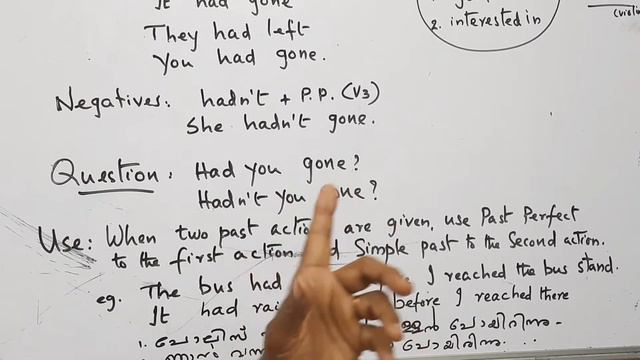 It had gone
They had left
You had gone.
2. interested in
Negatives: hadn't + P.P. (V3)
She hadn't gone.
Question: Had you gone?
Hadn't you gone?
Use: When two past actions are given, use Past Perfect
to the first action and Simple past to the Second action.
eg. The bus had I reached the bus stand.
It had before I reached there
1. പോലീസ് കള്ളൻ പോയിരിന്നു.
ഞാൻ പോയിരിന്നു.